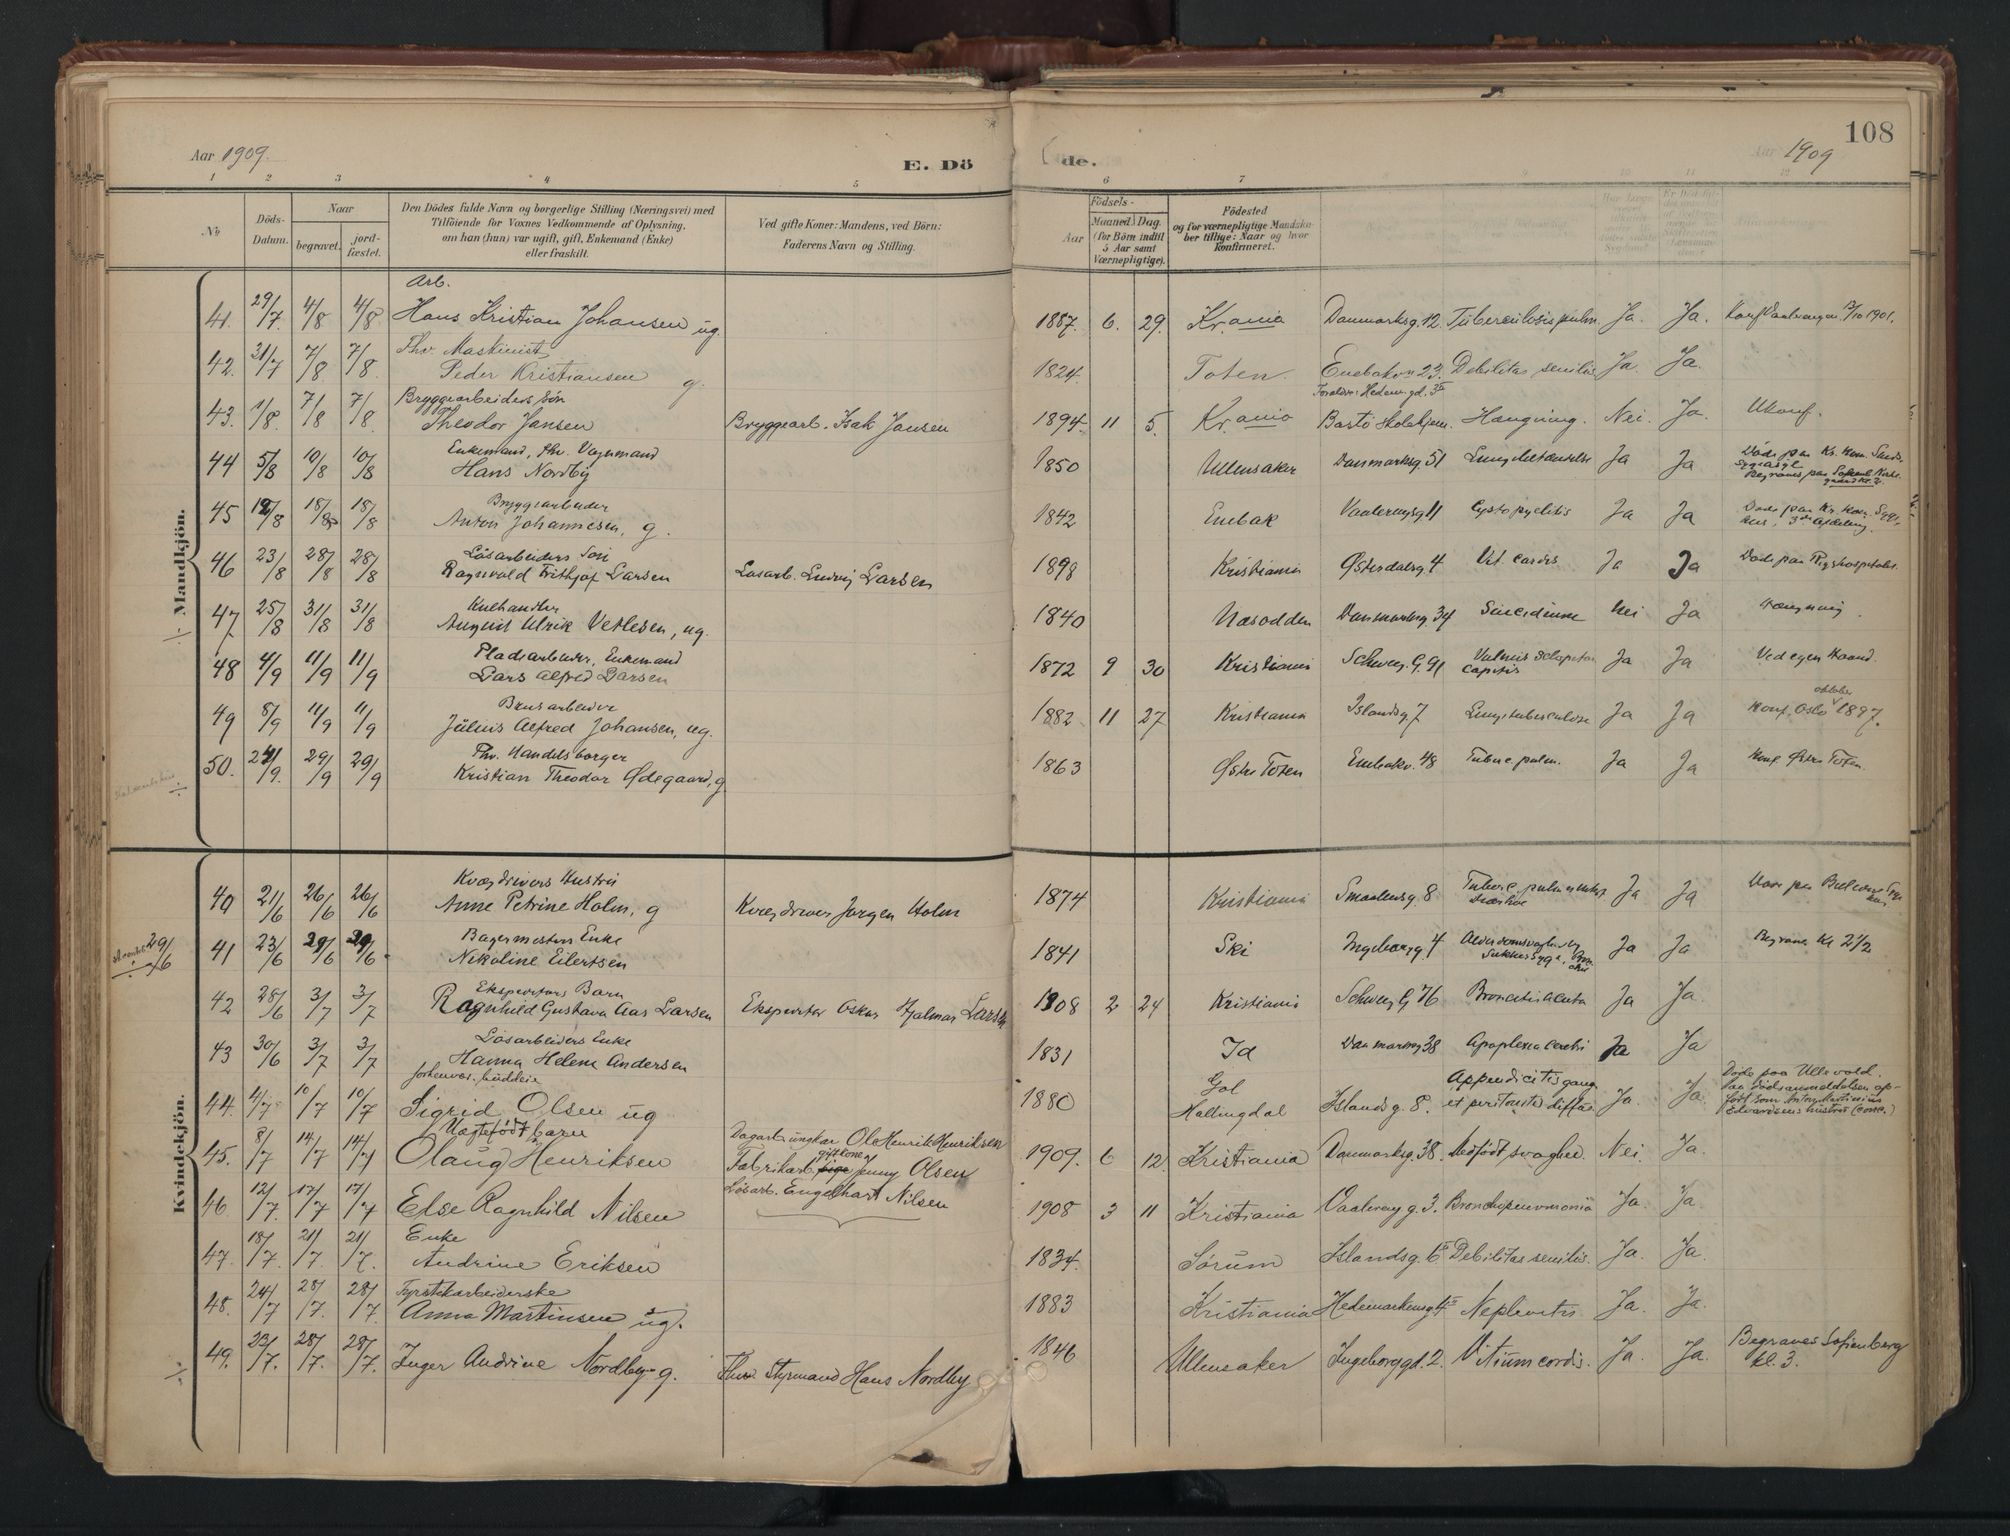 108
Aar 1909.
E. Dö
de.
1909
1 2 3 4 5 6 7
No
Döds-Datum.
Naar
begravet.
jord-fæstet.
Den Dödes fulde Navn og borgerlige Stilling (Næringsvei) med
Tilföiende for Voxnes Vedkommende af Oplysning,
om han (hun) var ugift, gift, Enkemand (Enke)
eller fraskilt.
Ved gifte Koner: Mandens, ved Börn:
Faderens Navn og Stilling.
Födsels-
Aar
Maaned. Dag.
(for Börn indtil
5 Aar samt
Værnepligtige).
Födested
og for værnepligtige Mandska-
ber tillige: Naar og hvor
konfirmeret.
Mandkjön.
Arb.
41. 29/7 4/8 4/8 Hans Kristian Johansen ug. 1887. 6. 29. Kr.ania Danmarksg. 12. Tuberculosis pulm. Ja. Ja. Konf Vaalerengen 1901.
Fhv. Maskinist
42. 31/7 7/8 7/8 Peder Kristiansen g. 1824. Toten. Enebakv. 23. Debilitas senilis Ja. Ja.
Bryggearbeiders Sön
43. 1/8 7/8 7/8. Theodor Jansen Bryggearb. Isak Jansen 1894. 11 5. Kr.ania Bastö skolehjem. Hængning. Nei. Ja. Ukonf.
Enkemand, fhv. Vognmand
44 5/8 10/8 10/8 Hans Nordby 1850 Ullensaker Danmarksg 51 Ja Ja
Bryggearbeider
45 18/8 18/8 Anton Johannesen, g. 1842 Enebak Vaalerengsg 11 Cystopyelitis Ja Ja
Lösarbeiders Sön
46 23/8 28/8 28/8 Ragnvald Frithjof Larsen Lösarb. Ludvig Larsen 1898 Kristiania Østerdalsg. 4 Vit. cordis Ja Ja Döde paa Rigshospitalet.
Kulhandler
47 25/8 31/8 31/8 August Ulrik Vetlesen, ug. 1840 Næsodden Danmarksg. 34 Suicidium Nei Ja Hængning.
Pladsarbeider, Enkemand
48 4/9 11/9 11/9 Lars Alfred Larsen 1872 9 30 Kristiania Schweig. G. 91 Vulnus sclopetar. capitis Ja Ja Ved egen Haand.
Brusarbeider
49 8/9 11/9 11/9 Julius Alfred Johansen, ug. 1882 11 27 Kristiania Islandsg. 7 Lungetuberculose Ja Ja Konf. Oslo oktober 1897.
Fhv. Handelsborger
50. 24/9. 29/9 29/9 Kristian Theodor Ødegaard, g 1863 Østre Toten Enebakv. 48 Tuberc. pulm. Ja Ja Konf Østre Toten.
Kvindekjön.
Kvægdrivers Hustru
40 21/6 26/6 26/6 Anne Petrine Holm, g Kvægdriver Jørgen Holm 1874 Kristiania Smaalensg. 8 Ja Ja
Bagermesters Enke
41 23/6 29/6 29/6. Nikoline Eilertsen 1841 Ski Ingeborgg 4 Ja Ja Begraves Kl 2 1/2
29/6
Ekspeditørs Barn
42 28/6 3/7 3/7 Ragnhild Gustava Aas Larsen Ekspeditør Oskar Hjalmar Larsen 1908 2 24 Kristiania Schweig G 76 Bronchitis acuta Ja Ja.
Lösarbeiders Enke
43 30/6 3/7 3/7 Hanna Helene Andersen 1831 Id Danmarksg 38 Apoplexia cerebri Ja Ja
forhenvær. budeie
44. 4/7 10/7 10/7 Sigrid Olsen ug 1880 Gol Hallingdal Islandsg. 8. Appendicitis gang. et peritonitis diffus Ja. Ja. Döde paa Ullevold.
Uægtefödt barn
45. 8/7 14/7 14/7 Olaug Henriksen Dagarb. ungkar Ole Henrik Henriksen
og gift kone Fabrikarb. Jenny Olsen 1909. 6 12. Kristiania Danmarksg. 38. Medfödt svaghed. Nei. Ja.
46 12/7. 17/7 17/7 Else Ragnhild Nilsen Lösarb. Engelhart Nilsen 1908 3 11 Kristiania Vaalereng g. 3. Bronchopneumonia Ja. Ja.
Enke
47. 18/7 21/7. 21/7. Andrine Eriksen 1834. Sørum Islandsg. 6 Debilitas senilis. Ja. Ja.
Fyrstikarbeiderske
48. 24/7 28/7. 28/7. Anna Martinsen ug. 1883 Kristiania Hedemarkensg. 4 Nephritis. Ja. Ja.
49. 23/7. 28/7. 28/7. Inger Andrine Nordby g. Fhv. Styrmand Hans Nordby 1846 Ullensaker Ingeborggd. 2. Vitium cordis. Ja. Ja. Begraves Sofienberg
kl. 3.